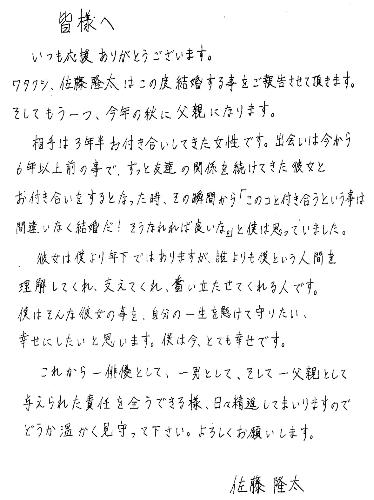 皆様へ
いつも応援ありがとうございます。
ワタクシ、佐藤隆太はこの度結婚する事をご報告させて頂きます。
そしてもう一つ、今年の秋に父親になります。
相手は3年半お付き合いしてきた女性です。出会いは今から
6年以上前の事で、ずっと友達の関係を続けてきた彼女と
お付き合いをするとなった時、その瞬間から「このコと付き合うという事は
間違いなく結婚だ!そうなれれば良いな。」と僕は思っていました。
彼女は僕より年下ではありますが、誰よりも僕という人間を
理解してくれ、支えてくれ、奮い立たせてくれる人です。
僕はそんな彼女の事を、自分の一生を懸けて守りたい、
幸せにしたいと思います。僕は今、とても幸せです。
これから一俳優として、一男として、そして一父親として
与えられた責任を全うできる様、日々精進してまいりますので
どうか温かく見守って下さい。よろしくお願いします。
佐藤隆太